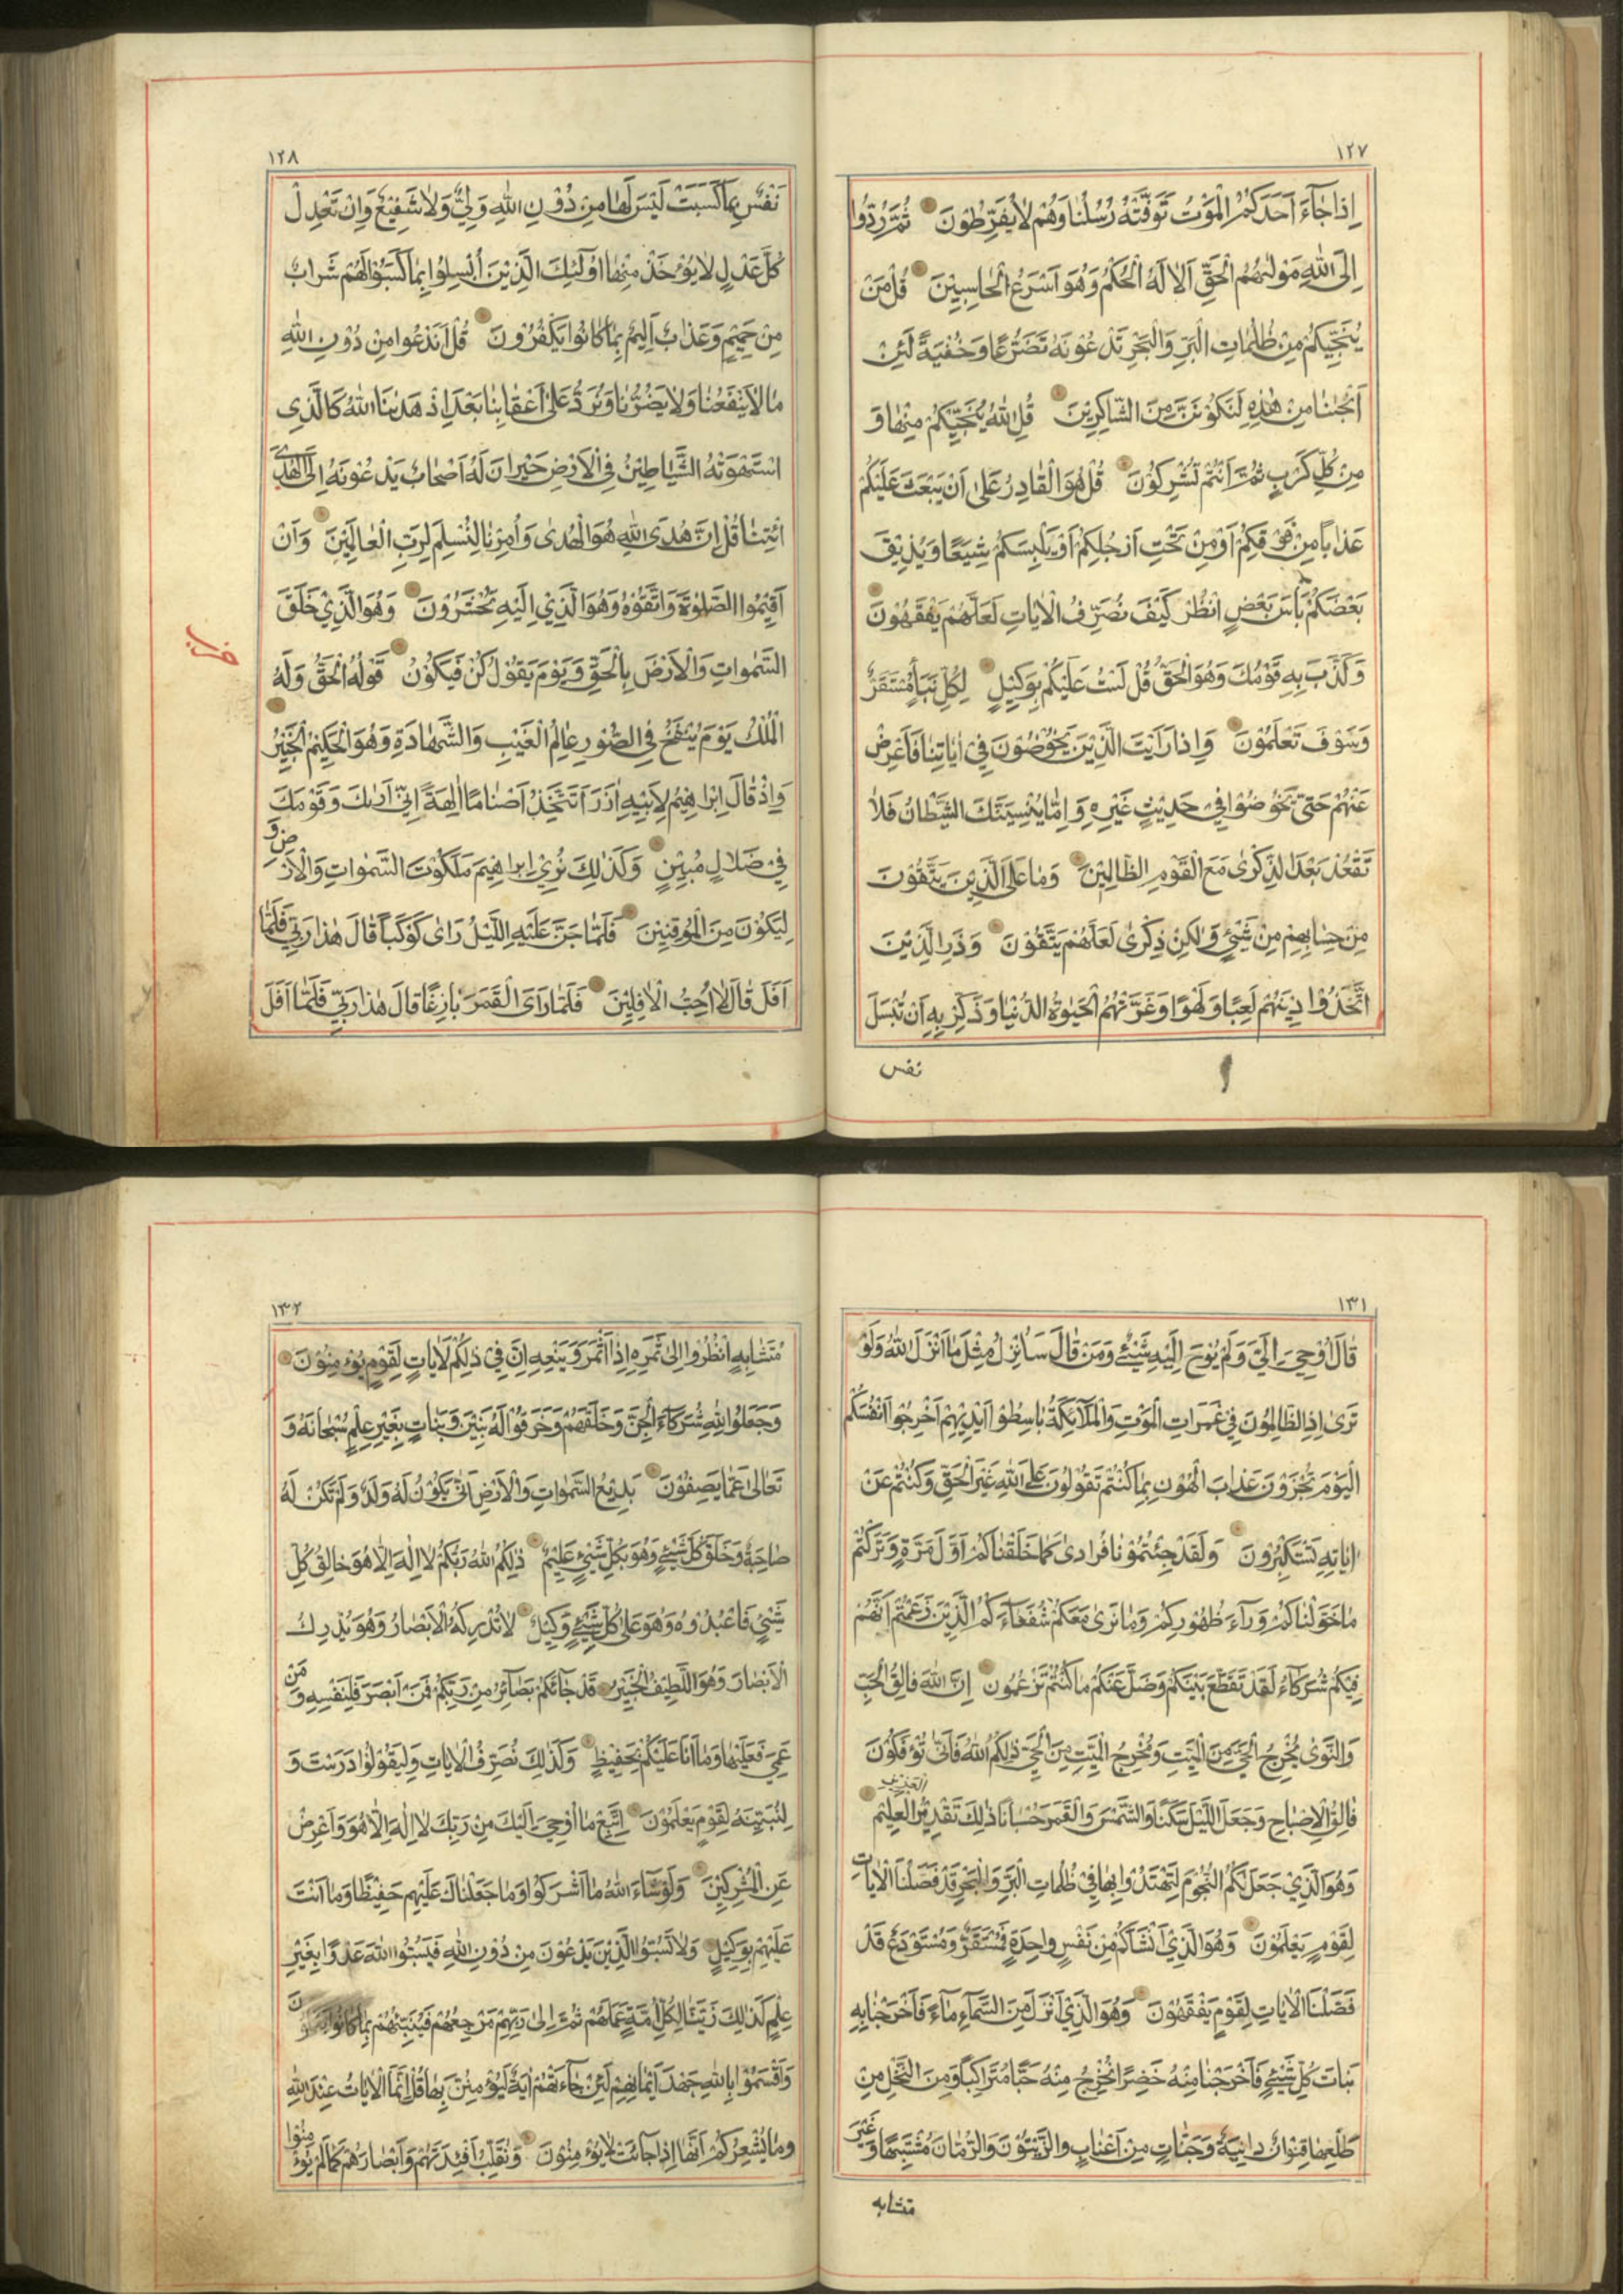 ١٢٧
اِذَا جَآءَ اَحَدَكُمُ الْمَوْتُ تَوَفَّتْهُ رُسُلُنَا وَهُمْ لَا يُفَرِّطُونَ ثُمَّ رُدُّوا
اِلَى اللّٰهِ مَوْلٰىهُمُ الْحَقِّ اَلَا لَهُ الْحُكْمُ وَهُوَ اَسْرَعُ الْحَاسِبِيْنَ قُلْ مَنْ
يُنَجِّيكُمْ مِنْ ظُلُمَاتِ الْبَرِّ وَالْبَحْرِ تَدْعُوْنَهُ تَضَرُّعًا وَخُفْيَةً لَئِنْ
اَنْجٰىنَا مِنْ هٰذِهِ لَنَكُوْنَنَّ مِنَ الشَّاكِرِيْنَ قُلِ اللّٰهُ يُنَجِّيكُمْ مِنْهَا وَ
مِنْ كُلِّ كَرْبٍ ثُمَّ اَنْتُمْ تُشْرِكُوْنَ قُلْ هُوَ الْقَادِرُ عَلٰى اَنْ يَبْعَثَ عَلَيْكُمْ
عَذَابًا مِنْ فَوْقِكُمْ اَوْ مِنْ تَحْتِ اَرْجُلِكُمْ اَوْ يَلْبِسَكُمْ شِيَعًا وَيُذِيْقَ
بَعْضَكُمْ بَأْسَ بَعْضٍ اُنْظُرْ كَيْفَ نُصَرِّفُ الْاٰيَاتِ لَعَلَّهُمْ يَفْقَهُوْنَ
وَكَذَّبَ بِهِ قَوْمُكَ وَهُوَ الْحَقُّ قُلْ لَسْتُ عَلَيْكُمْ بِوَكِيْلٍ لِكُلِّ نَبَأٍ مُسْتَقَرٌّ
وَسَوْفَ تَعْلَمُوْنَ وَاِذَا رَاَيْتَ الَّذِيْنَ يَخُوْضُوْنَ فِي اٰيَاتِنَا فَاَعْرِضْ
عَنْهُمْ حَتّٰى يَخُوْضُوْا فِيْ حَدِيْثٍ غَيْرِهِ وَاِمَّا يُنْسِيَنَّكَ الشَّيْطَانُ فَلَا
تَقْعُدْ بَعْدَ الذِّكْرٰى مَعَ الْقَوْمِ الظَّالِمِيْنَ وَمَا عَلَى الَّذِيْنَ يَتَّقُوْنَ
مِنْ حِسَابِهِمْ مِنْ شَيْئٍ وَلٰكِنْ ذِكْرٰى لَعَلَّهُمْ يَتَّقُوْنَ وَذَرِ الَّذِيْنَ
اتَّخَذُوْا دِيْنَهُمْ لَعِبًا وَلَهْوًا وَغَرَّتْهُمُ الْحَيٰوةُ الدُّنْيَا وَذَكِّرْ بِهِ اَنْ تُبْسَلَ
نفس
١٢٨
نَفْسٌ بِمَا كَسَبَتْ لَيْسَ لَهَا مِنْ دُوْنِ اللّٰهِ وَلِيٌّ وَلَا شَفِيْعٌ وَاِنْ تَعْدِلْ
كُلَّ عَدْلٍ لَا يُؤْخَذْ مِنْهَا اُولٰٓئِكَ الَّذِيْنَ اُبْسِلُوْا بِمَا كَسَبُوْا لَهُمْ شَرَابٌ
مِنْ حَمِيْمٍ وَعَذَابٌ اَلِيْمٌ بِمَا كَانُوْا يَكْفُرُوْنَ قُلْ اَنَدْعُوا مِنْ دُوْنِ اللّٰهِ
مَا لَا يَنْفَعُنَا وَلَا يَضُرُّنَا وَنُرَدُّ عَلٰى اَعْقَابِنَا بَعْدَ اِذْ هَدٰىنَا اللّٰهُ كَالَّذِي
اسْتَهْوَتْهُ الشَّيَاطِيْنُ فِي الْاَرْضِ حَيْرَانَ لَهُ اَصْحَابٌ يَدْعُوْنَهُ اِلَى الْهُدَى
ائْتِنَا قُلْ اِنَّ هُدَى اللّٰهِ هُوَ الْهُدٰى وَاُمِرْنَا لِنُسْلِمَ لِرَبِّ الْعَالَمِيْنَ وَاَنْ
اَقِيْمُوا الصَّلٰوةَ وَاتَّقُوْهُ وَهُوَ الَّذِيْ اِلَيْهِ تُحْشَرُوْنَ وَهُوَ الَّذِيْ خَلَقَ
السَّمٰوَاتِ وَالْاَرْضَ بِالْحَقِّ وَيَوْمَ يَقُوْلُ كُنْ فَيَكُوْنُ قَوْلُهُ الْحَقُّ وَلَهُ
الْمُلْكُ يَوْمَ يُنْفَخُ فِي الصُّوْرِ عَالِمُ الْغَيْبِ وَالشَّهَادَةِ وَهُوَ الْحَكِيْمُ الْخَبِيْرُ
وَاِذْ قَالَ اِبْرَاهِيْمُ لِاَبِيْهِ اٰزَرَ اَتَتَّخِذُ اَصْنَامًا اٰلِهَةً اِنِّي اَرٰىكَ وَقَوْمَكَ
فِيْ ضَلَالٍ مُبِيْنٍ وَكَذٰلِكَ نُرِيْ اِبْرَاهِيْمَ مَلَكُوْتَ السَّمٰوَاتِ وَالْاَرْضِ وَ
لِيَكُوْنَ مِنَ الْمُوْقِنِيْنَ فَلَمَّا جَنَّ عَلَيْهِ اللَّيْلُ رَاٰى كَوْكَبًا قَالَ هٰذَا رَبِّي فَلَمَّا
اَفَلَ قَالَ لَا اُحِبُّ الْاٰفِلِيْنَ فَلَمَّا رَاَى الْقَمَرَ بَازِغًا قَالَ هٰذَا رَبِّي فَلَمَّا اَفَلَ
١٣١
قَالَ اُوْحِيَ اِلَيَّ وَلَمْ يُوْحَ اِلَيْهِ شَيْئٌ وَمَنْ قَالَ سَاُنْزِلُ مِثْلَ مَا اَنْزَلَ اللّٰهُ وَلَوْ
تَرٰى اِذِ الظَّالِمُوْنَ فِيْ غَمَرَاتِ الْمَوْتِ وَالْمَلٰٓائِكَةُ بَاسِطُوْا اَيْدِيْهِمْ اَخْرِجُوْا اَنْفُسَكُمْ
الْيَوْمَ تُجْزَوْنَ عَذَابَ الْهُوْنِ بِمَا كُنْتُمْ تَقُوْلُوْنَ عَلَى اللّٰهِ غَيْرَ الْحَقِّ وَكُنْتُمْ عَنْ
اٰيَاتِهِ تَسْتَكْبِرُوْنَ وَلَقَدْ جِئْتُمُوْنَا فُرَادٰى كَمَا خَلَقْنَاكُمْ اَوَّلَ مَرَّةٍ وَتَرَكْتُمْ
مَا خَوَّلْنَاكُمْ وَرَآءَ ظُهُوْرِكُمْ وَمَا نَرٰى مَعَكُمْ شُفَعَآءَكُمُ الَّذِيْنَ زَعَمْتُمْ اَنَّهُمْ
فِيْكُمْ شُرَكَآءُ لَقَدْ تَقَطَّعَ بَيْنَكُمْ وَضَلَّ عَنْكُمْ مَا كُنْتُمْ تَزْعُمُوْنَ اِنَّ اللّٰهَ فَالِقُ الْحَبِّ
وَالنَّوٰى يُخْرِجُ الْحَيَّ مِنَ الْمَيِّتِ وَمُخْرِجُ الْمَيِّتِ مِنَ الْحَيِّ ذٰلِكُمُ اللّٰهُ فَاَنّٰى تُؤْفَكُوْنَ
فَالِقُ الْاِصْبَاحِ وَجَعَلَ اللَّيْلَ سَكَنًا وَالشَّمْسَ وَالْقَمَرَ حُسْبَانًا ذٰلِكَ تَقْدِيْرُ الْعَزِيْزِ الْعَلِيْمِ
وَهُوَ الَّذِيْ جَعَلَ لَكُمُ النُّجُوْمَ لِتَهْتَدُوْا بِهَا فِيْ ظُلُمَاتِ الْبَرِّ وَالْبَحْرِ قَدْ فَصَّلْنَا الْاٰيَاتِ
لِقَوْمٍ يَعْلَمُوْنَ وَهُوَ الَّذِيْ اَنْشَاَكُمْ مِنْ نَفْسٍ وَاحِدَةٍ فَمُسْتَقَرٌّ وَمُسْتَوْدَعٌ قَدْ
فَصَّلْنَا الْاٰيَاتِ لِقَوْمٍ يَفْقَهُوْنَ وَهُوَ الَّذِيْ اَنْزَلَ مِنَ السَّمَآءِ مَآءً فَاَخْرَجْنَا بِهِ
نَبَاتَ كُلِّ شَيْئٍ فَاَخْرَجْنَا مِنْهُ خَضِرًا نُخْرِجُ مِنْهُ حَبًّا مُتَرَاكِبًا وَمِنَ النَّخْلِ مِنْ
طَلْعِهَا قِنْوَانٌ دَانِيَةٌ وَجَنَّاتٍ مِنْ اَعْنَابٍ وَالزَّيْتُوْنَ وَالرُّمَّانَ مُشْتَبِهًا وَغَيْرَ
متشابه
١٣٢
مُتَشَابِهٍ اُنْظُرُوْا اِلٰى ثَمَرِهِ اِذَا اَثْمَرَ وَيَنْعِهِ اِنَّ فِيْ ذٰلِكُمْ لَاٰيَاتٍ لِقَوْمٍ يُؤْمِنُوْنَ
وَجَعَلُوْا لِلّٰهِ شُرَكَآءَ الْجِنَّ وَخَلَقَهُمْ وَخَرَقُوْا لَهُ بَنِيْنَ وَبَنَاتٍ بِغَيْرِ عِلْمٍ سُبْحَانَهُ وَ
تَعَالٰى عَمَّا يَصِفُوْنَ بَدِيْعُ السَّمٰوَاتِ وَالْاَرْضِ اَنّٰى يَكُوْنُ لَهُ وَلَدٌ وَلَمْ تَكُنْ لَهُ
صَاحِبَةٌ وَخَلَقَ كُلَّ شَيْئٍ وَهُوَ بِكُلِّ شَيْئٍ عَلِيْمٌ ذٰلِكُمُ اللّٰهُ رَبُّكُمْ لَا اِلٰهَ اِلَّا هُوَ خَالِقُ كُلِّ
شَيْئٍ فَاعْبُدُوْهُ وَهُوَ عَلٰى كُلِّ شَيْئٍ وَكِيْلٌ لَا تُدْرِكُهُ الْاَبْصَارُ وَهُوَ يُدْرِكُ
الْاَبْصَارَ وَهُوَ اللَّطِيْفُ الْخَبِيْرُ قَدْ جَآئَكُمْ بَصَآئِرُ مِنْ رَبِّكُمْ فَمَنْ اَبْصَرَ فَلِنَفْسِهِ وَمَنْ
عَمِيَ فَعَلَيْهَا وَمَا اَنَا عَلَيْكُمْ بِحَفِيْظٍ وَكَذٰلِكَ نُصَرِّفُ الْاٰيَاتِ وَلِيَقُوْلُوْا دَرَسْتَ وَ
لِنُبَيِّنَهُ لِقَوْمٍ يَعْلَمُوْنَ اِتَّبِعْ مَا اُوْحِيَ اِلَيْكَ مِنْ رَبِّكَ لَا اِلٰهَ اِلَّا هُوَ وَاَعْرِضْ
عَنِ الْمُشْرِكِيْنَ وَلَوْ شَآءَ اللّٰهُ مَا اَشْرَكُوْا وَمَا جَعَلْنَاكَ عَلَيْهِمْ حَفِيْظًا وَمَا اَنْتَ
عَلَيْهِمْ بِوَكِيْلٍ وَلَا تَسُبُّوا الَّذِيْنَ يَدْعُوْنَ مِنْ دُوْنِ اللّٰهِ فَيَسُبُّوا اللّٰهَ عَدْوًا بِغَيْرِ
عِلْمٍ كَذٰلِكَ زَيَّنَّا لِكُلِّ اُمَّةٍ عَمَلَهُمْ ثُمَّ اِلٰى رَبِّهِمْ مَرْجِعُهُمْ فَيُنَبِّئُهُمْ بِمَا كَانُوْا
وَاَقْسَمُوْا بِاللّٰهِ جَهْدَ اَيْمَانِهِمْ لَئِنْ جَآءَتْهُمْ اٰيَةٌ لَيُؤْمِنُنَّ بِهَا قُلْ اِنَّمَا الْاٰيَاتُ عِنْدَ اللّٰهِ
وَمَا يُشْعِرُكُمْ اَنَّهَا اِذَا جَآئَتْ لَا يُؤْمِنُوْنَ وَنُقَلِّبُ اَفْئِدَتَهُمْ وَاَبْصَارَهُمْ كَمَا لَمْ يُؤْمِنُوْا